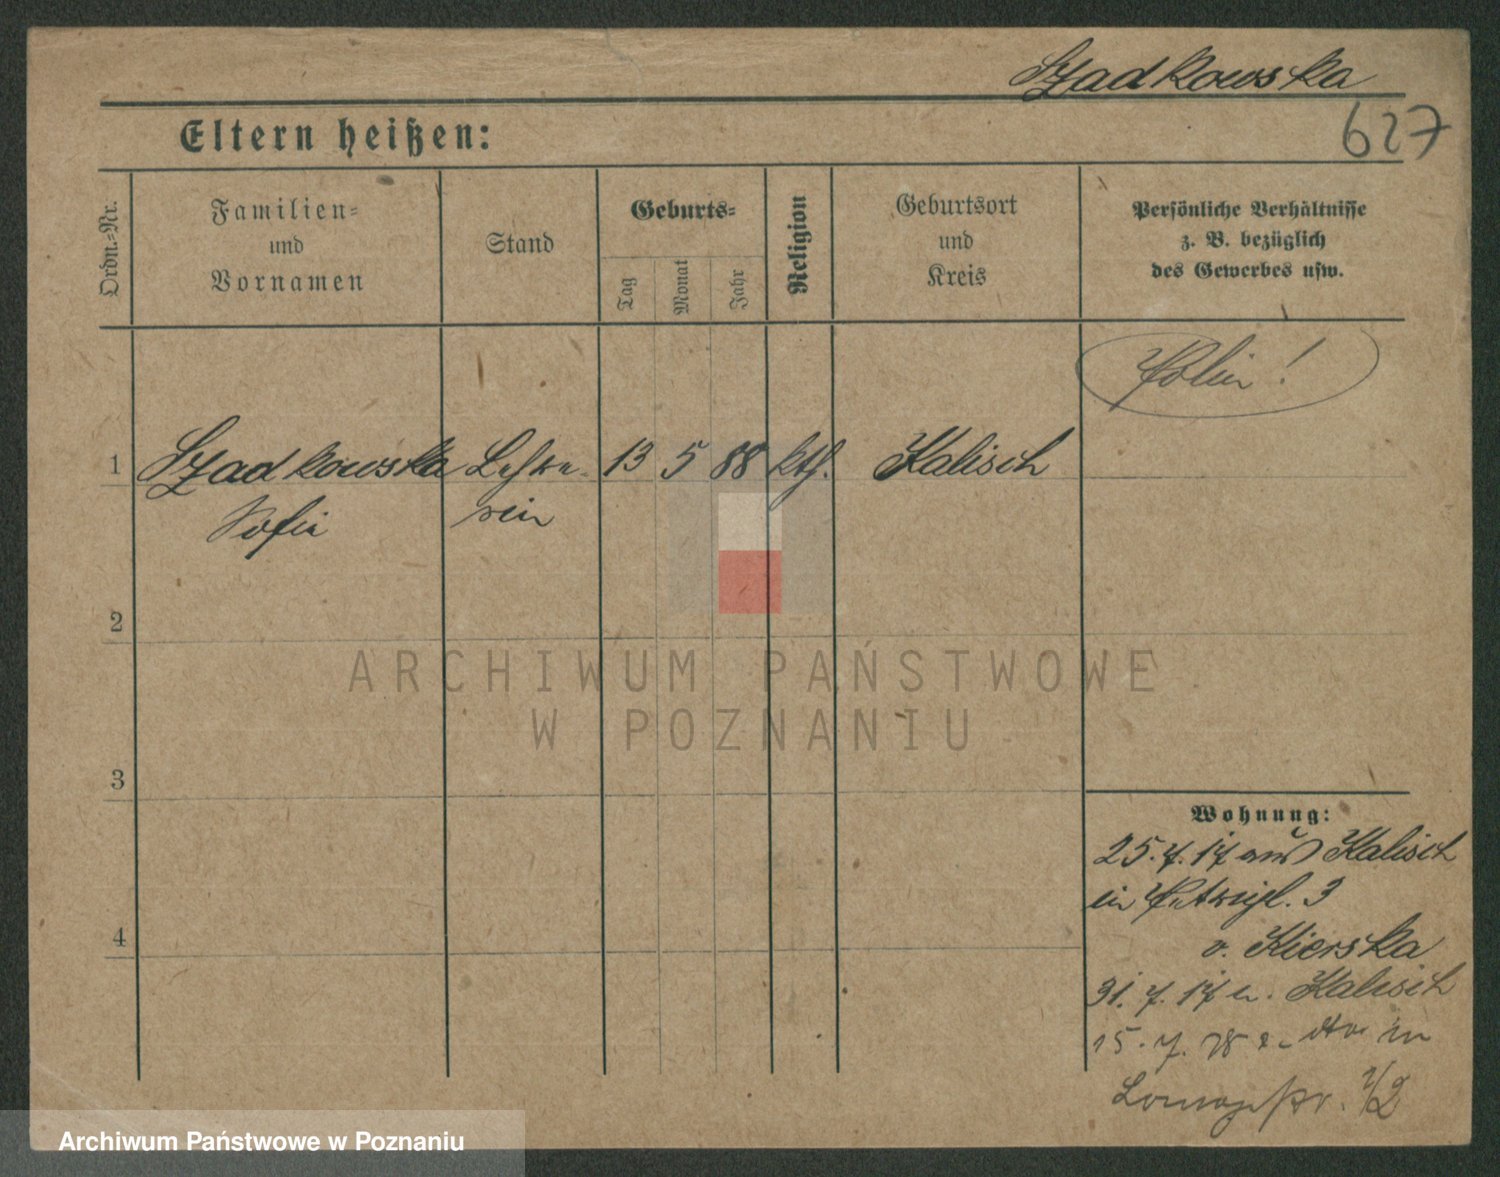 Szadkowska
627
Eltern heißen:
Ordn.=Nr.
Familien=
und
Vornamen
Stand
Geburts=
Tag
Monat
Jahr
Religion
Geburtsort
und
Kreis
Persönliche Verhältnisse
z. B. bezüglich
des Gewerbes usw.
Polin!
1 Szadkowska Lehre- 13 5 88 kth. Kalisch
Sofie rin
2
3
4
Wohnung:
25. 7. 17 aus Kalisch
in 3
v. Kierska
31. 7. 17 n. Kalisch
15. 7. 18 in
ARCHIWUM PAŃSTWOWE
W POZNANIU
Archiwum Państwowe w Poznaniu